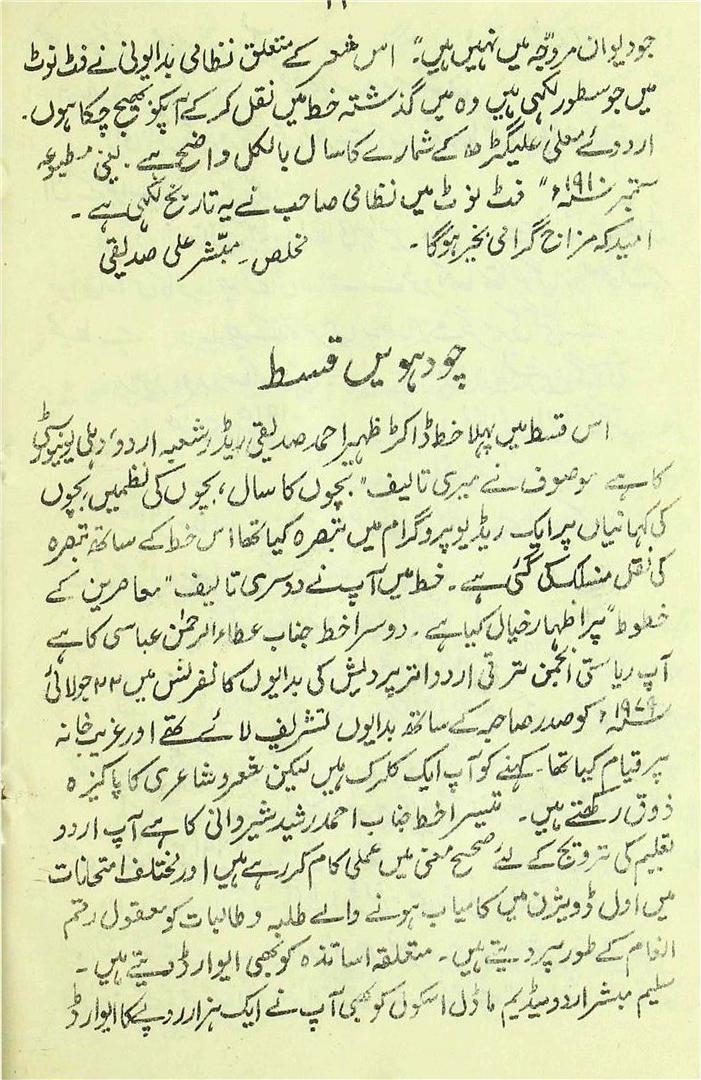 جو دیوان مروّجہ میں نہیں ہیں"۔ اس شعر کے متعلق نظامی بدایونی نے فٹ نوٹ
میں جو سطور لکھی ہیں وہ میں گذشتہ خط میں نقل کر کے آپکو بھیج چکا ہوں۔
اردوئے معلیٰ علیگڑھ کے شمارے کا سال بالکل واضح ہے۔ یعنی مطبوعہ
ستمبر ۱۹۱۰ء" فٹ نوٹ میں نظامی صاحب نے یہ تاریخ لکھی ہے۔
امید کہ مزاج گرامی بخیر ہوگا۔ مخلص۔ مبشر علی صدیقی
چودہویں قسط
اس قسط میں پہلا خط ڈاکٹر ظہیر احمد صدیقی ریڈر شعبہ اردو، دہلی یونیورسٹی
کا ہے موصوف نے میری تالیف "بچوں کا سال، بچوں کی نظمیں، بچوں
کی کہانیاں پر ایک ریڈیو پروگرام میں تبصرہ کیا تھا اس خط کے ساتھ تبصرہ
کی نقل منسلک کی گئی ہے۔ خط میں آپ نے دوسری تالیف "معاصرین کے
خطوط" پر اظہار خیال کیا ہے۔ دوسرا خط جناب عطاء الرحمٰن عباسی کا ہے
آپ ریاستی انجمن ترقی اردو اتر پردیش کی بدایوں کانفرنس میں ۲۳ جولائی
۱۹۷۹ء کو صدر صاحبہ کے ساتھ بدایوں تشریف لائے تھے اور غریب خانہ
پر قیام کیا تھا۔ کہنے کو آپ ایک کلرک ہیں لیکن شعر و شاعری کا پاکیزہ
ذوق رکھتے ہیں۔ تیسرا خط جناب احمد رشید شیروانی کا ہے آپ اردو
تعلیم کی ترویج کے لئے صحیح معنی میں عملی کام کر رہے ہیں اور مختلف امتحانات
میں اول ڈویژن میں کامیاب ہونے والے طلبہ و طالبات کو معقول رقم
انعام کے طور پر دیتے ہیں۔ متعلقہ اساتذہ کو بھی ایوارڈ دیتے ہیں۔
سلیم مبشر اردو میڈیم ماڈل اسکول کو بھی آپ نے ایک ہزار روپے کا ایوارڈ